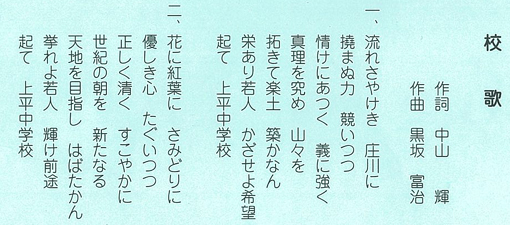 校歌
作詞 中山 輝
作曲 黒坂 富治
一、流れさやけき 庄川に
撓まぬ力 競いつつ
情けにあつく 義に強く
真理を究め 山々を
拓きて楽土 築かなん
栄あり若人 かざせよ希望
起て 上平中学校
二、花に紅葉に さみどりに
優しき心 たぐいつつ
正しく清く すこやかに
世紀の朝を 新たなる
天地を目指し はばたかん
挙れよ若人 輝け前途
起て 上平中学校